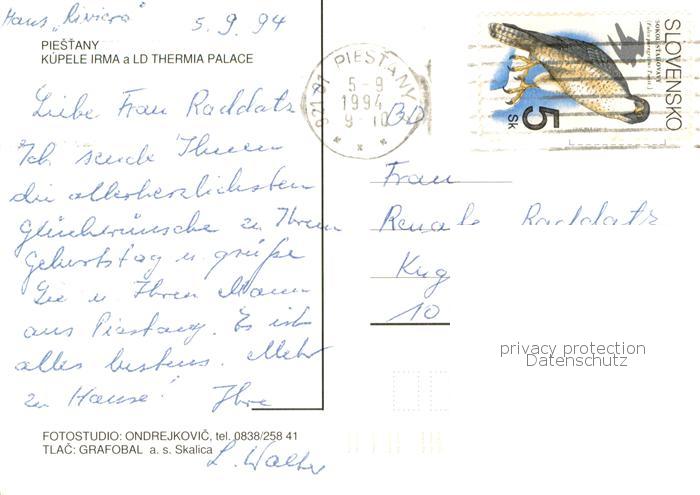 Haus „Riviera" 5.9.94
PIEŠŤANY
KÚPELE IRMA a LD THERMIA PALACE
Liebe Frau Raddatz
Ich sende Ihnen
die allerherzlichsten
Glückwünsche zu Ihrem
Geburtstag u. grüße
Sie u. Ihren Mann
aus Piestany. Es ist
alles bestens. Mehr
zu Hause! Ihre
L. Walter
FOTOSTUDIO: ONDREJKOVIČ, tel. 0838/258 41
TLAČ: GRAFOBAL a. s. Skalica
921 01 PIEŠŤANY
5-9
1994
9-10
SLOVENSKO
5 Sk
BD
Frau
Renate Raddatz
10
privacy protection
Datenschutz